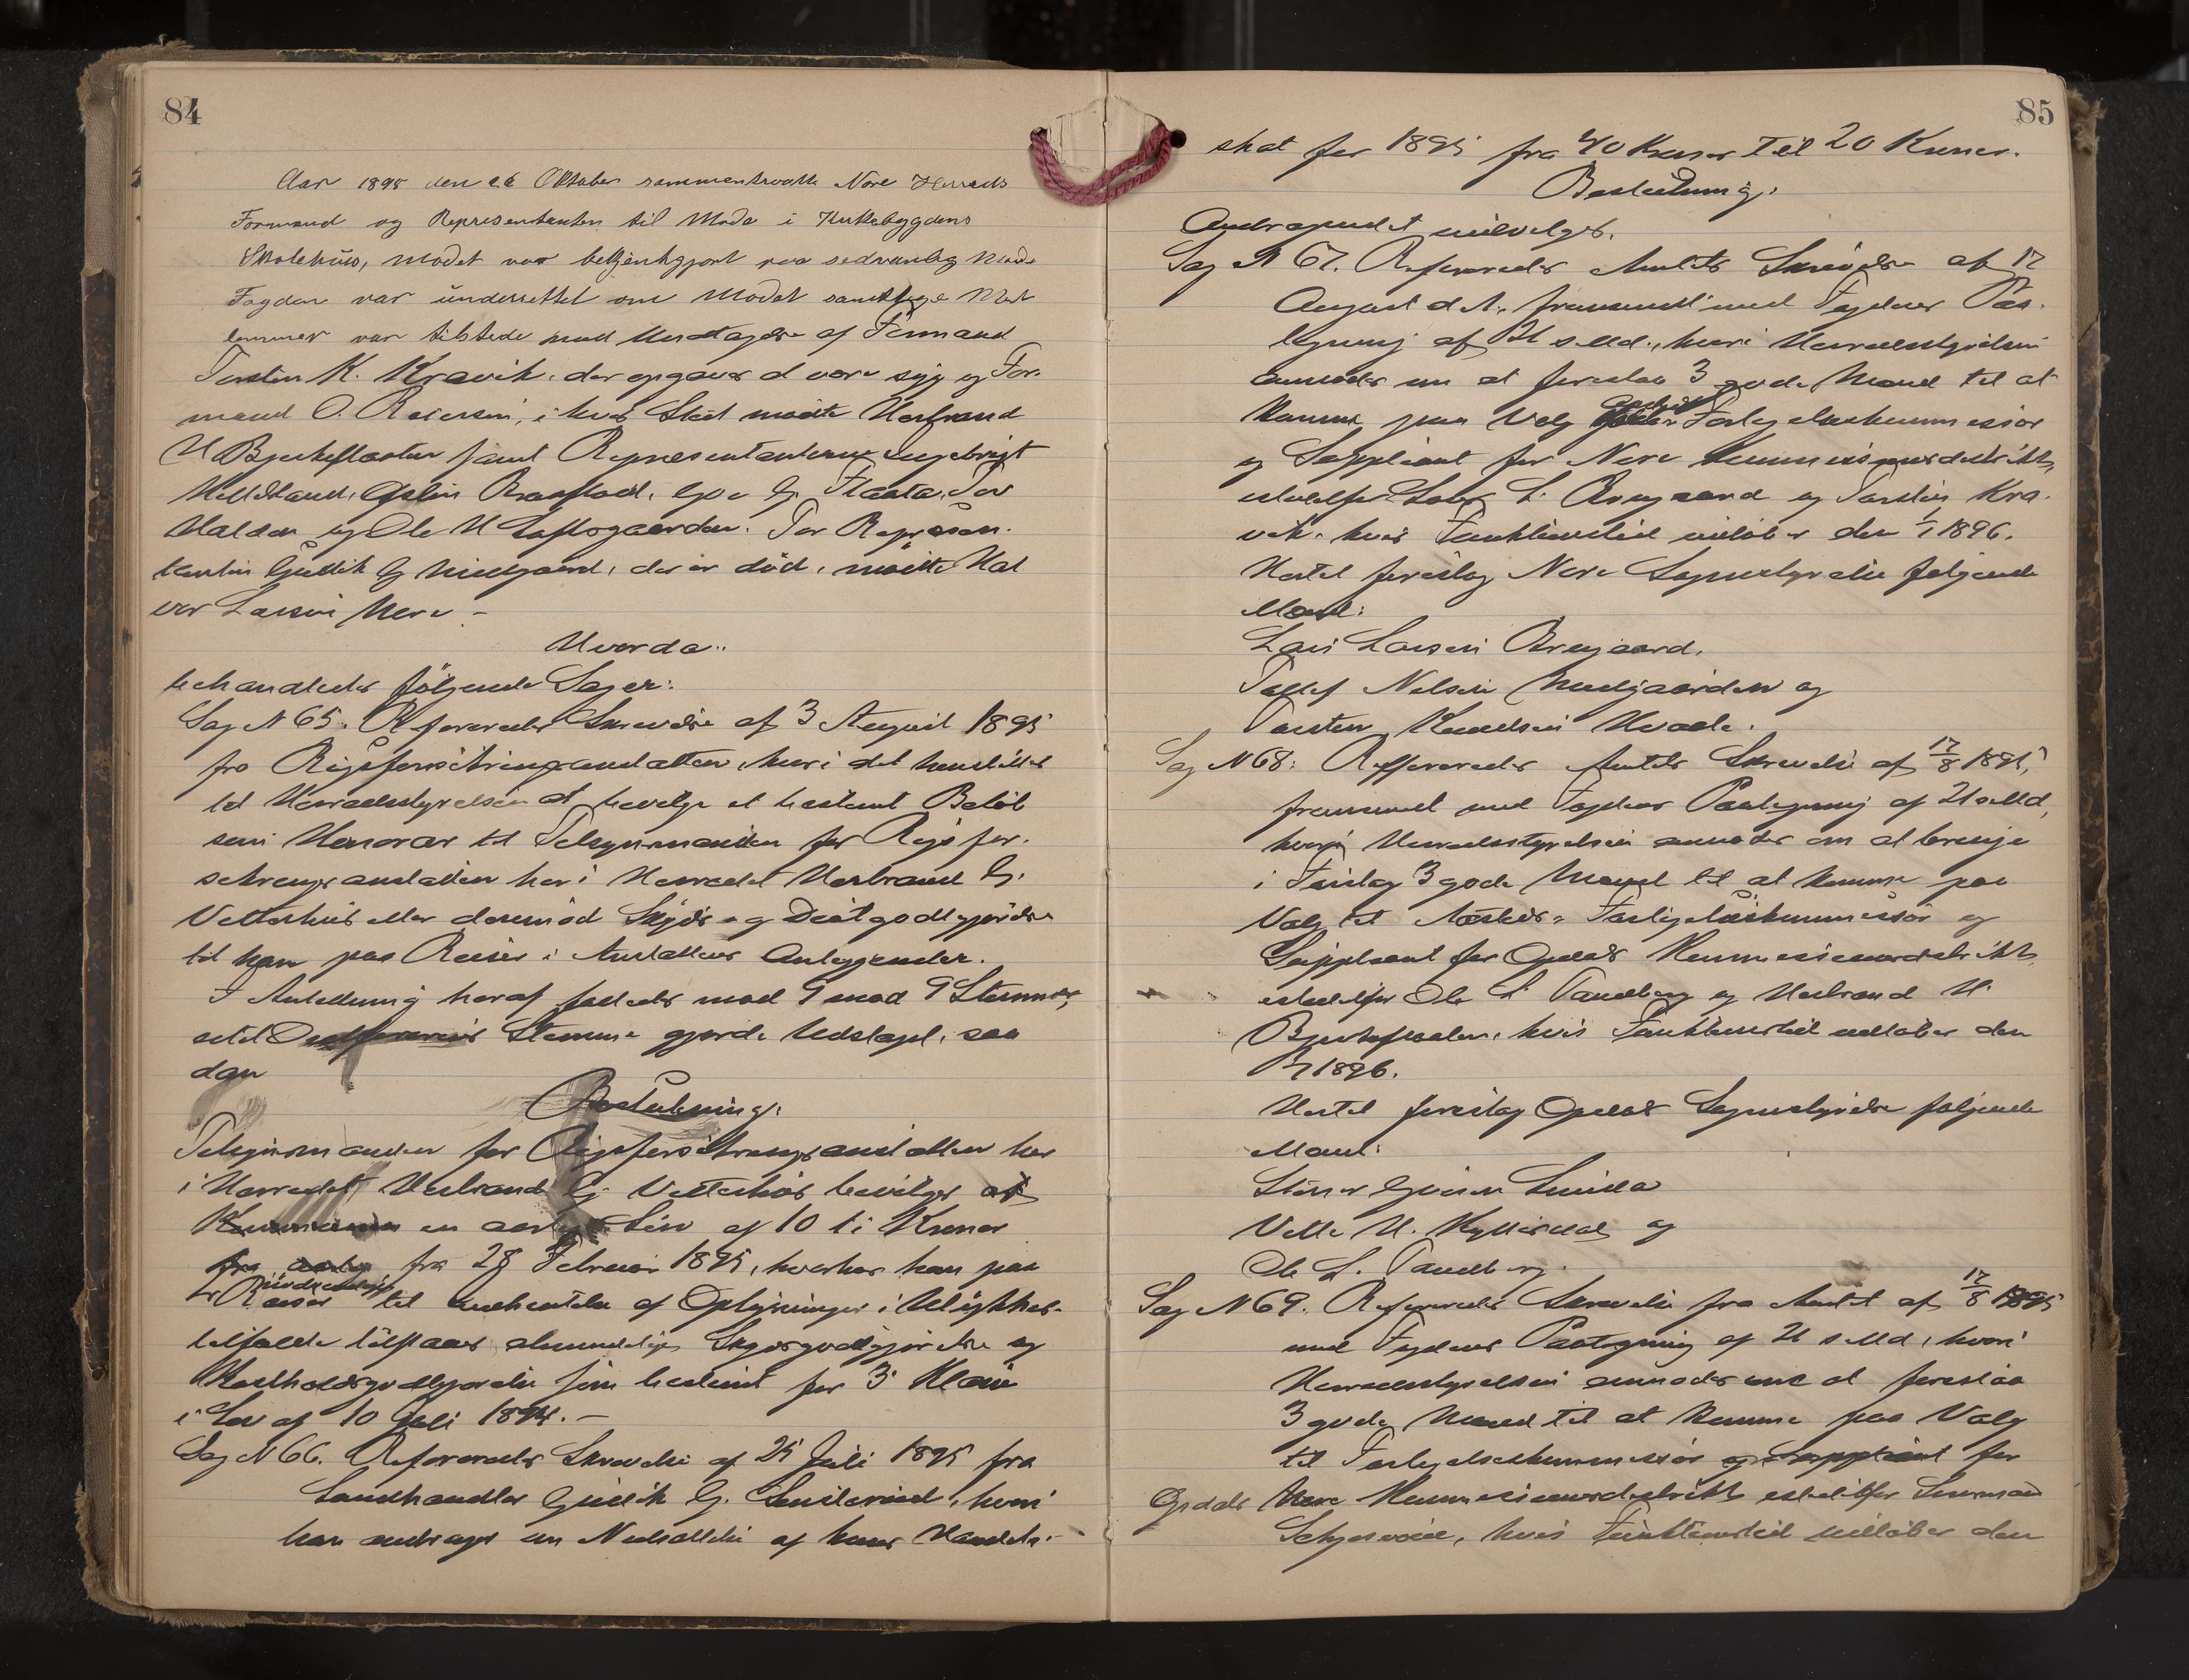 84
Aar 1895 den 26 Oktober sammentraatte Nore Herreds
Formænd og Representanten til Møde i Hvttebygdens
Skolehus, Mødet var bekjentgjort paa sedvanlig Maade
Fogden var underrettet om Mødet samtlige Med
lemmer var tilstede med Undtagelse af Formand
Torsten K. Kravik, der opgaves at være syg og For-
mand O. i hvis Sted mødte Herbrand
H samt Repræsentanterne Ingebrigt
Tor
og Ole H Toftsgaarden. For Repræsen-
tanten Gullik G Midgaard, der er død, mødte Hal
vor Larsen Nore –
Hvorda:
behandledes følgende Sager:
Sag N 65. Refereredes Skrivelse af 3 August 1895
fra Rigsforsikringsanstalten, hvori det henstilles
til Herredsstyrelsen at bevilge et bestemt Beløb
som Honorar til Tilsynsmanden for Rigsfor-
sikringsanstalten her i Herredet Herbrand G.
Vetterhus eller derimod Skyds og Diætgodtgjørelse
til ham paa Reiser i Anstaltens Anliggender.
I Anledning heraf faldt med 9 mod 9 Stemmer,
Ordførerens Stemme gjorde Udslaget, saa
dan
Beslutning:
Tilsynsmanden for Rigsforsikringsanstalten her
i Herredet Herbrand G Vetterhus bevilges
en aarlig Løn af 10 ti Kroner
fra 28 Februar 1895, hvorhos han paa
Reiser til Indhentelse af Oplysninger i Ulykkes-
tilfælde tilstaaes almindelig Skydsgodtgjørelse og
Kostholdsgodtgjørelse som bestemt for 3 Klasse
i Lov af 10 Juli 1894. –
Sag N 66. Refereredes Skrivelse af 25 Juli 1895 fra
Landhandler Gullik G. hvori
han andrager om Nedsættelse af hans Handels-
85
skat for 1895 fra 40 Kroner til 20 Kroner.
Beslutning:
Andragendet indvilges.
Sag N 67. Refereredes Amtets Skrivelse af 17
August d. A. fremsendt med Fogdens Paa-
tegning af 21 s. Md., hvori Herredsstyrelsen
anmodes om at foreslaa 3 gode Mænd til at
komme paa Valg Forligelseskommissær
og Suppleant for Nore Kommissionsdistrikt,
istedetfor Lars L. Aregaard og Torsten Kra-
vik, hvis Funktionstid udløber den 1/1 1896.
Hertil foreslog Nore Sognestyrelse følgende
Mænd:
Lars Larsen Aregaard.
Tollef Nelsen Midgaarden og
Torsten Knudsen Hvaale.
Sag N 68. Refereredes Amtets Skrivelse af 17/8 1895,
fremsendt med Fogdens Paategning af 21 s. Md,
hvori Herredsstyrelsen anmodes om at bringe
i Forslag 3 gode Mænd til at komme paa
Valg til Forligelseskommissær og
Suppleant for Opdals Kommissionsdistrikt,
istedetfor Ole L. Tandberg og Herbrand H.
hvis Funktionstid udløber den
1/1 1896.
Hertil foreslog Opdals Sognestyrelse følgende
Mænd:
Vetle H. og
Ole L. Tandberg.
Sag N 69. Refereredes Skrivelse fra Amtet af 17/8 1895
med Fogdens Paategning af 21 s. Md, hvori
Herredsstyrelsen anmodes om at foreslaa
3 gode Mænd til at komme paa Valg
til Forligelseskommissær og Suppleant for
Opdals Kommissionsdistrikt istedetfor
hvis Funktionstid udløber den